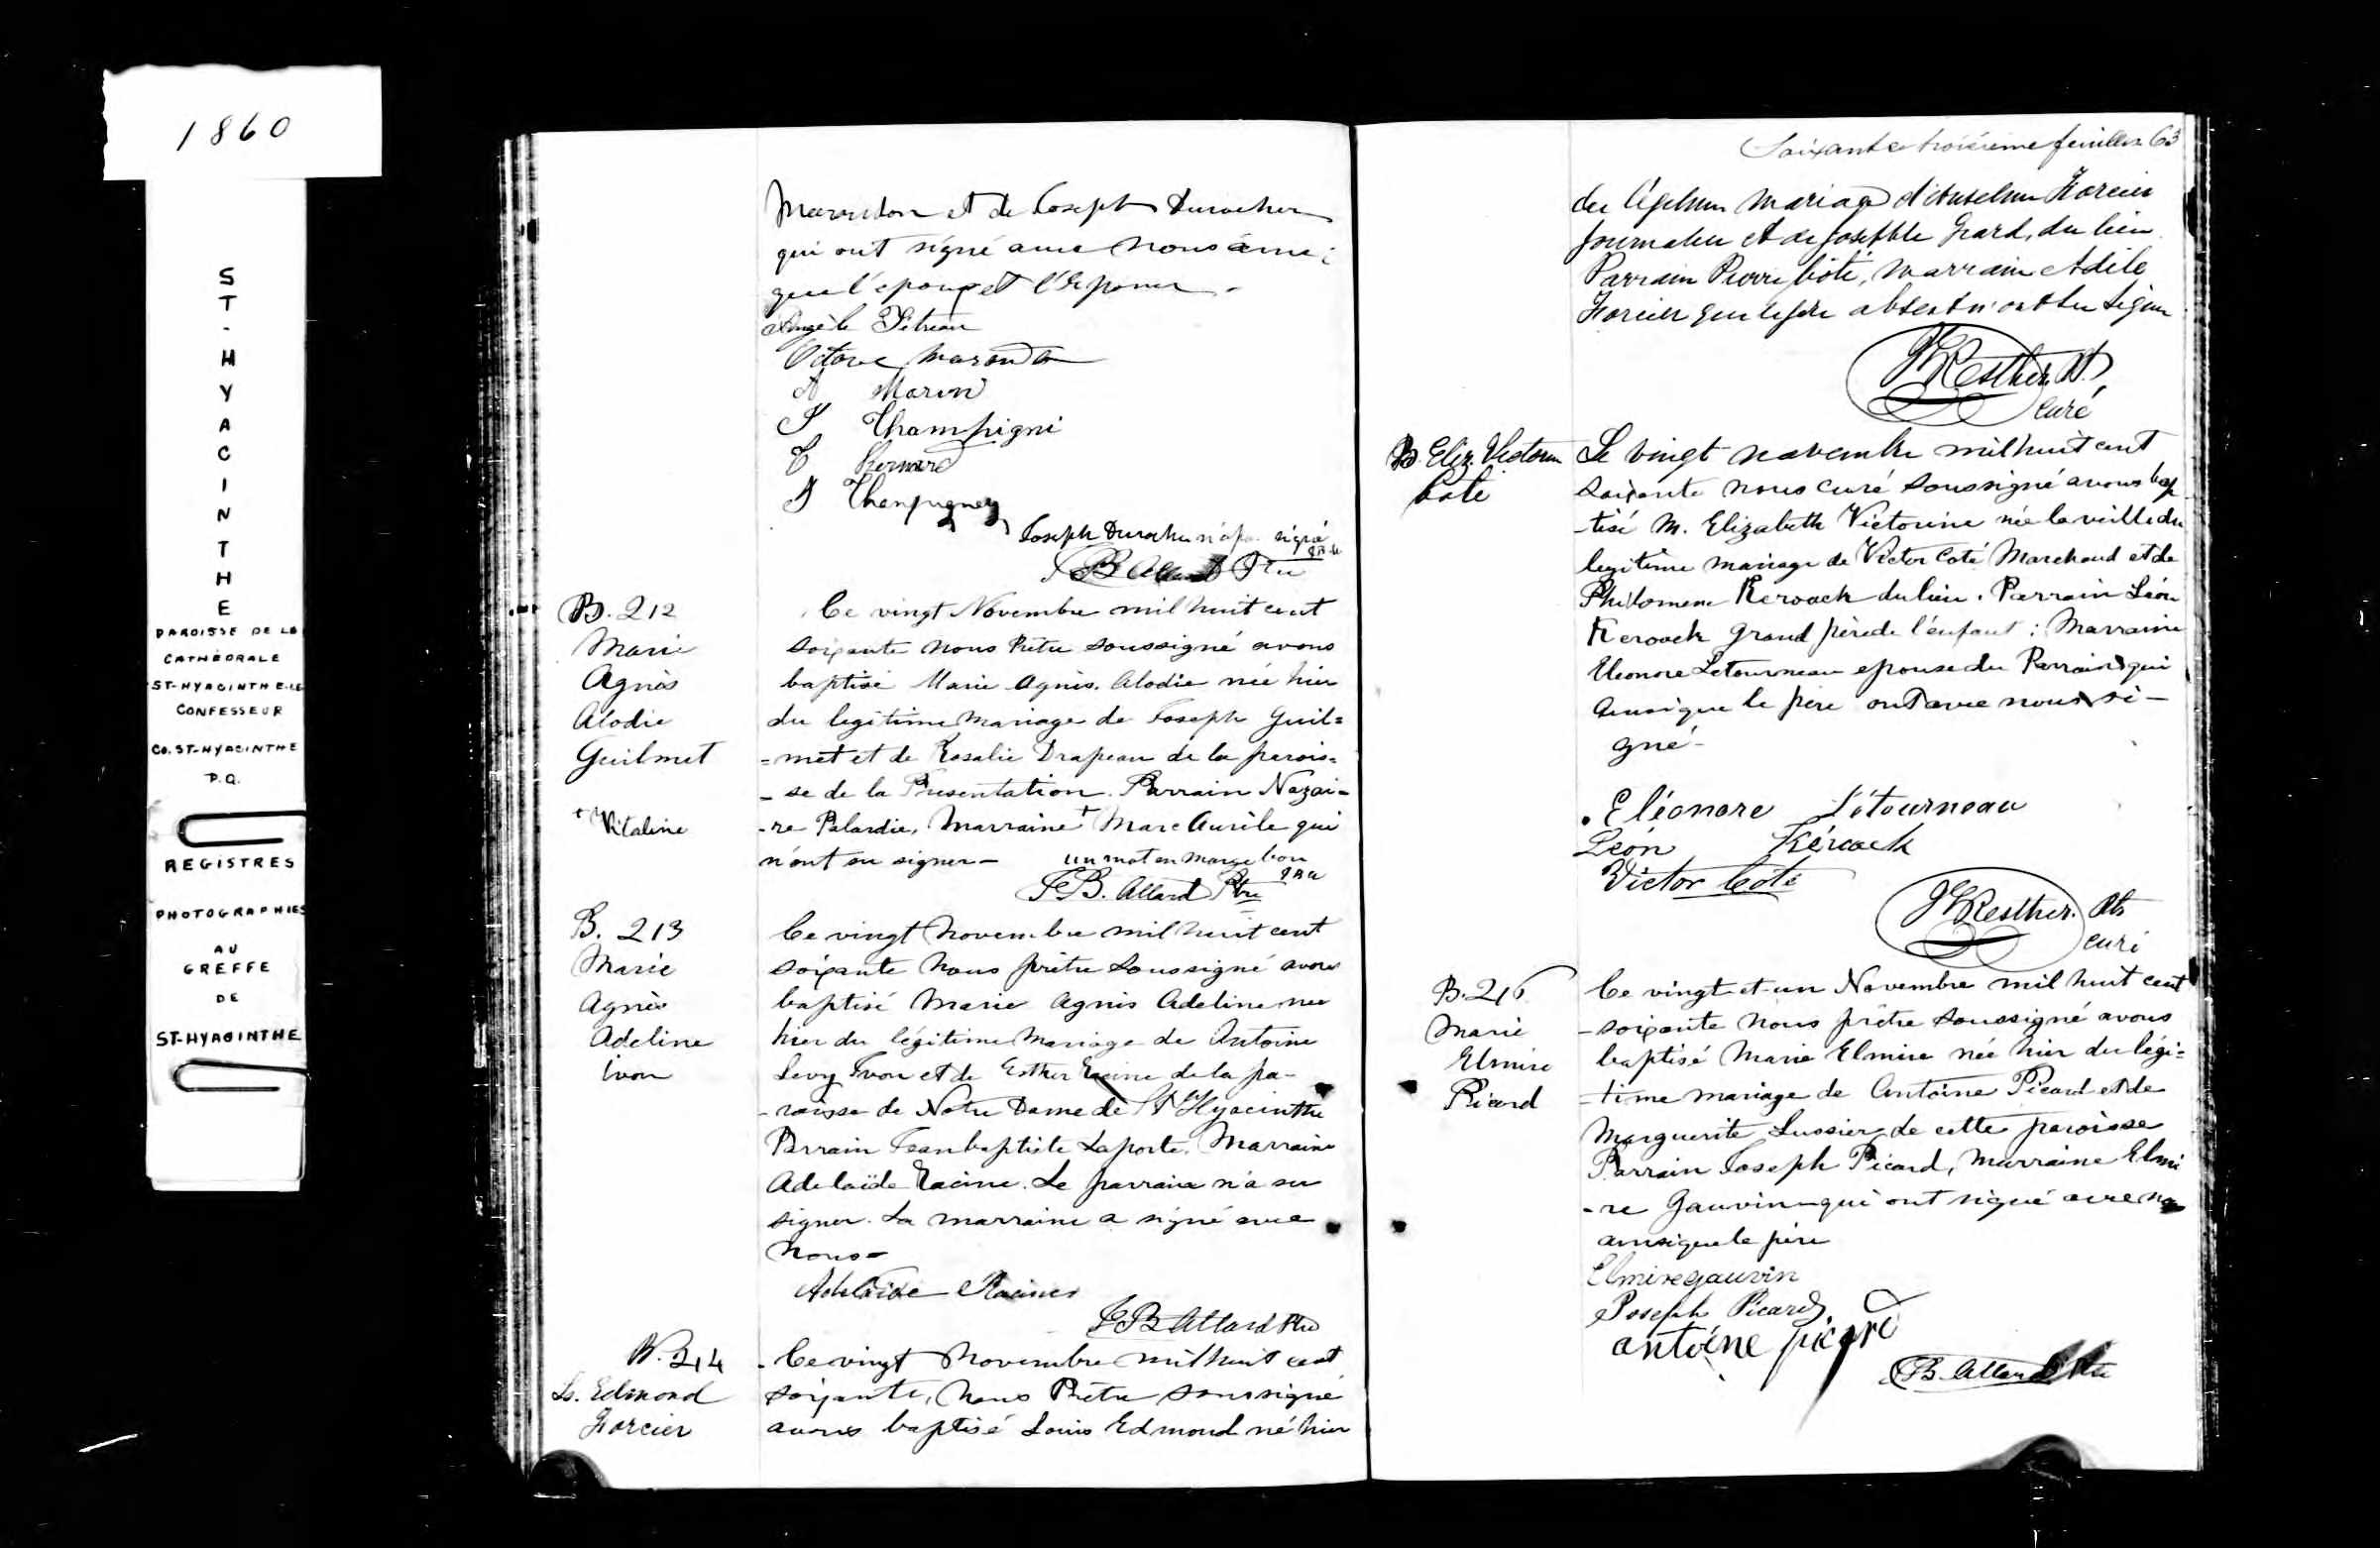 1860
ST-HYACINTHE
PAROISSE DE LA
CATHÉDRALE
ST-HYACINTHE-LE
CONFESSEUR
CO. ST-HYACINTHE
P.Q.
REGISTRES
PHOTOGRAPHIES
AU
GREFFE
DE
ST-HYACINTHE
et de Joseph Durocher
qui ont signé avec nous ainsi
que l'epoux et l'Epouse.
Angèle
Octave
A Marin
Champigni
Bernard
J Champigney
Joseph Durocher n'a pas signé
JBA
JB Allard Ptre
B. 212
Marie
Agnès
Alodie
Guilmet
+ Vitaline
Ce vingt Novembre mil huit cent
soixante nous Prêtre soussigné avons
baptisé Marie Agnès Alodie née hier
du legitime mariage de Joseph Guil=
=met et de Rosalie Drapeau de la parois=
- se de la Presentation. Parrain Nazai-
-re Palardie, Marraine + Marc Aurèle qui
n'ont su signer - un mot en marge bon
JBA
JB. Allard Ptre
B. 213
Marie
Agnès
Adeline
Ivon
Ce vingt Novembre mil huit cent
soixante Nous prêtre soussigné avons
baptisé Marie Agnès Adeline née
hier du légitime Mariage de Antoine
Levy Ivon et de Esther Racine de la pa-
-roisse de Notre Dame de St Hyacinthe
Parrain Jean baptiste Laporte. Marraine
Adelaïde Racine. Le parrain n'a su
signer. La marraine a signé avec
Nous-
Adelaïde Racine
JB Allard Ptre
B. 214
Ls. Edmond
Forcier
- Ce vingt Novembre mil huit cent
soixante, Nous Prêtre soussigné
avons baptisé Louis Edmond né hier
Soixante troisième feuillet 63
du légitime mariage d'Anselme Forcier
journalier et de Gard, du lieu
Parrain Pierre Côté, marraine Adèle
Forcier qui absent n'ont su signer
Resther Pt
curé
B. Eliz. Victorine
Coté
Le vingt novembre mil huit cent
soixante nous curé soussigné avons bap
-tisé M. Elizabeth Victorine née la veille du
legitime mariage de Victor Coté Marchand et de
Philomene Kerouack du lieu. Parrain Léon
Kerouack grand père de l'enfant: Marraine
Eleonore Letourneau epouse du Parrain qui
ainsi que le père ont avec nous si-
gné-
Eléonore Létourneau
Léon Kérouack
Victor Coté
Resther. Pt
curé
B. 216
Marie
Elmire
Picard
Ce vingt-et-un Novembre mil huit cent
-soixante Nous prêtre soussigné avons
baptisé Marie Elmire née hier du légi=
-time mariage de Antoine Picard et de
Marguerite Lussier de cette paroisse
Parrain Joseph Picard, Marraine Elmi
-re Gauvin qui ont signé avec nous
ainsi que le père
Elmire gauvin
Joseph Picard
antoine picard
JB. Allard Ptre